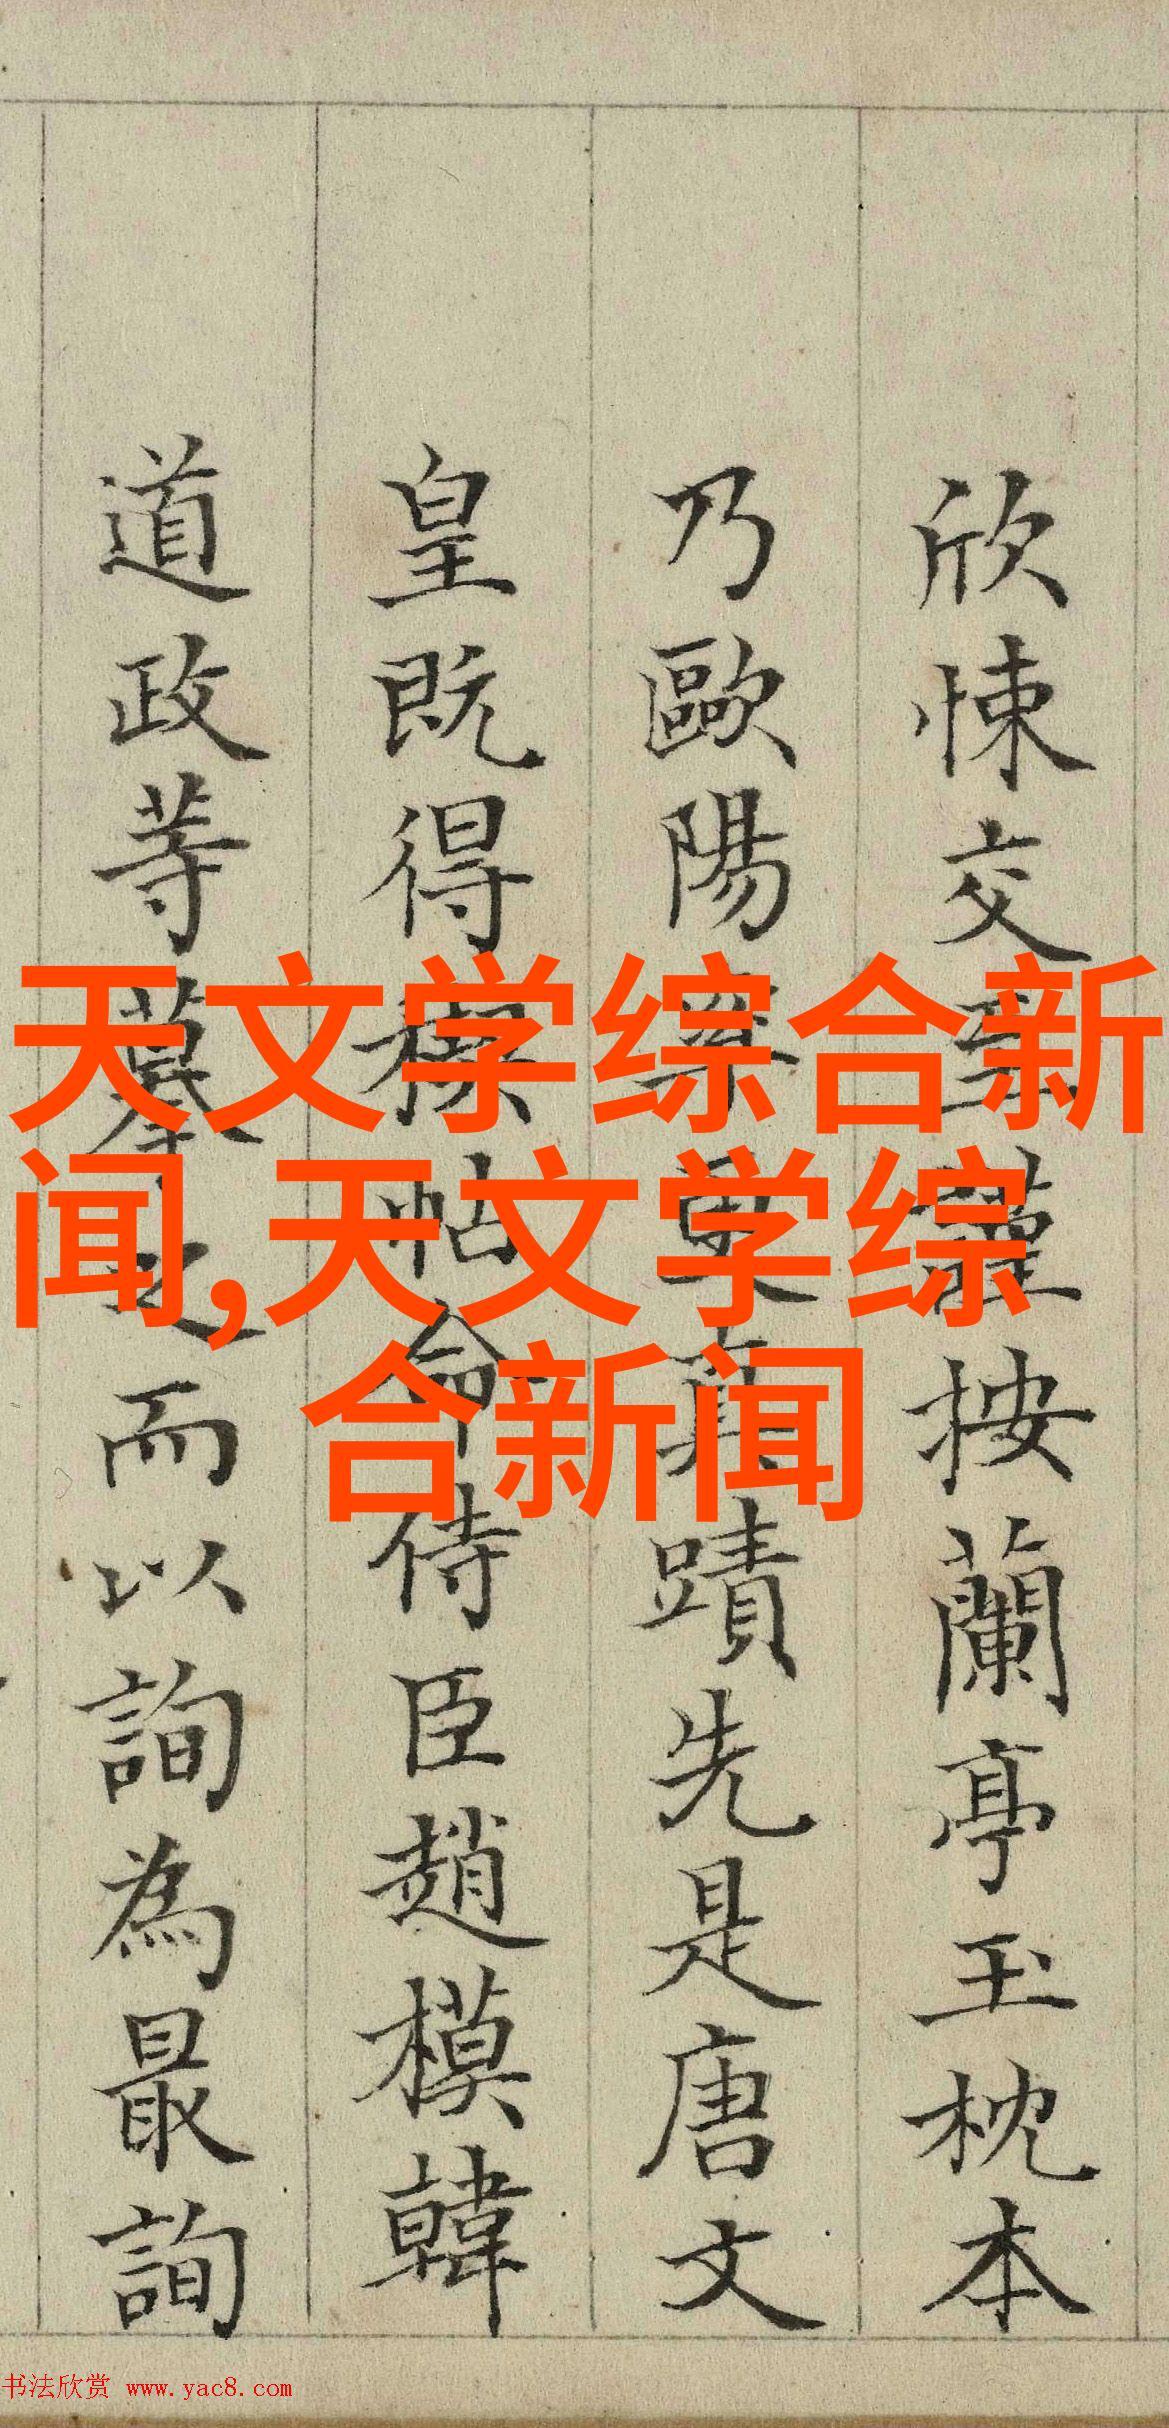 欣悚交至謹按蘭亭玉枕本
乃歐陽率更真蹟先是唐文
皇既得禊帖命侍臣趙模韓
道政等摹之而以詢為最詢
天文学综合新
闻,天文学综
合新闻
书法欣赏 www.yac8.com